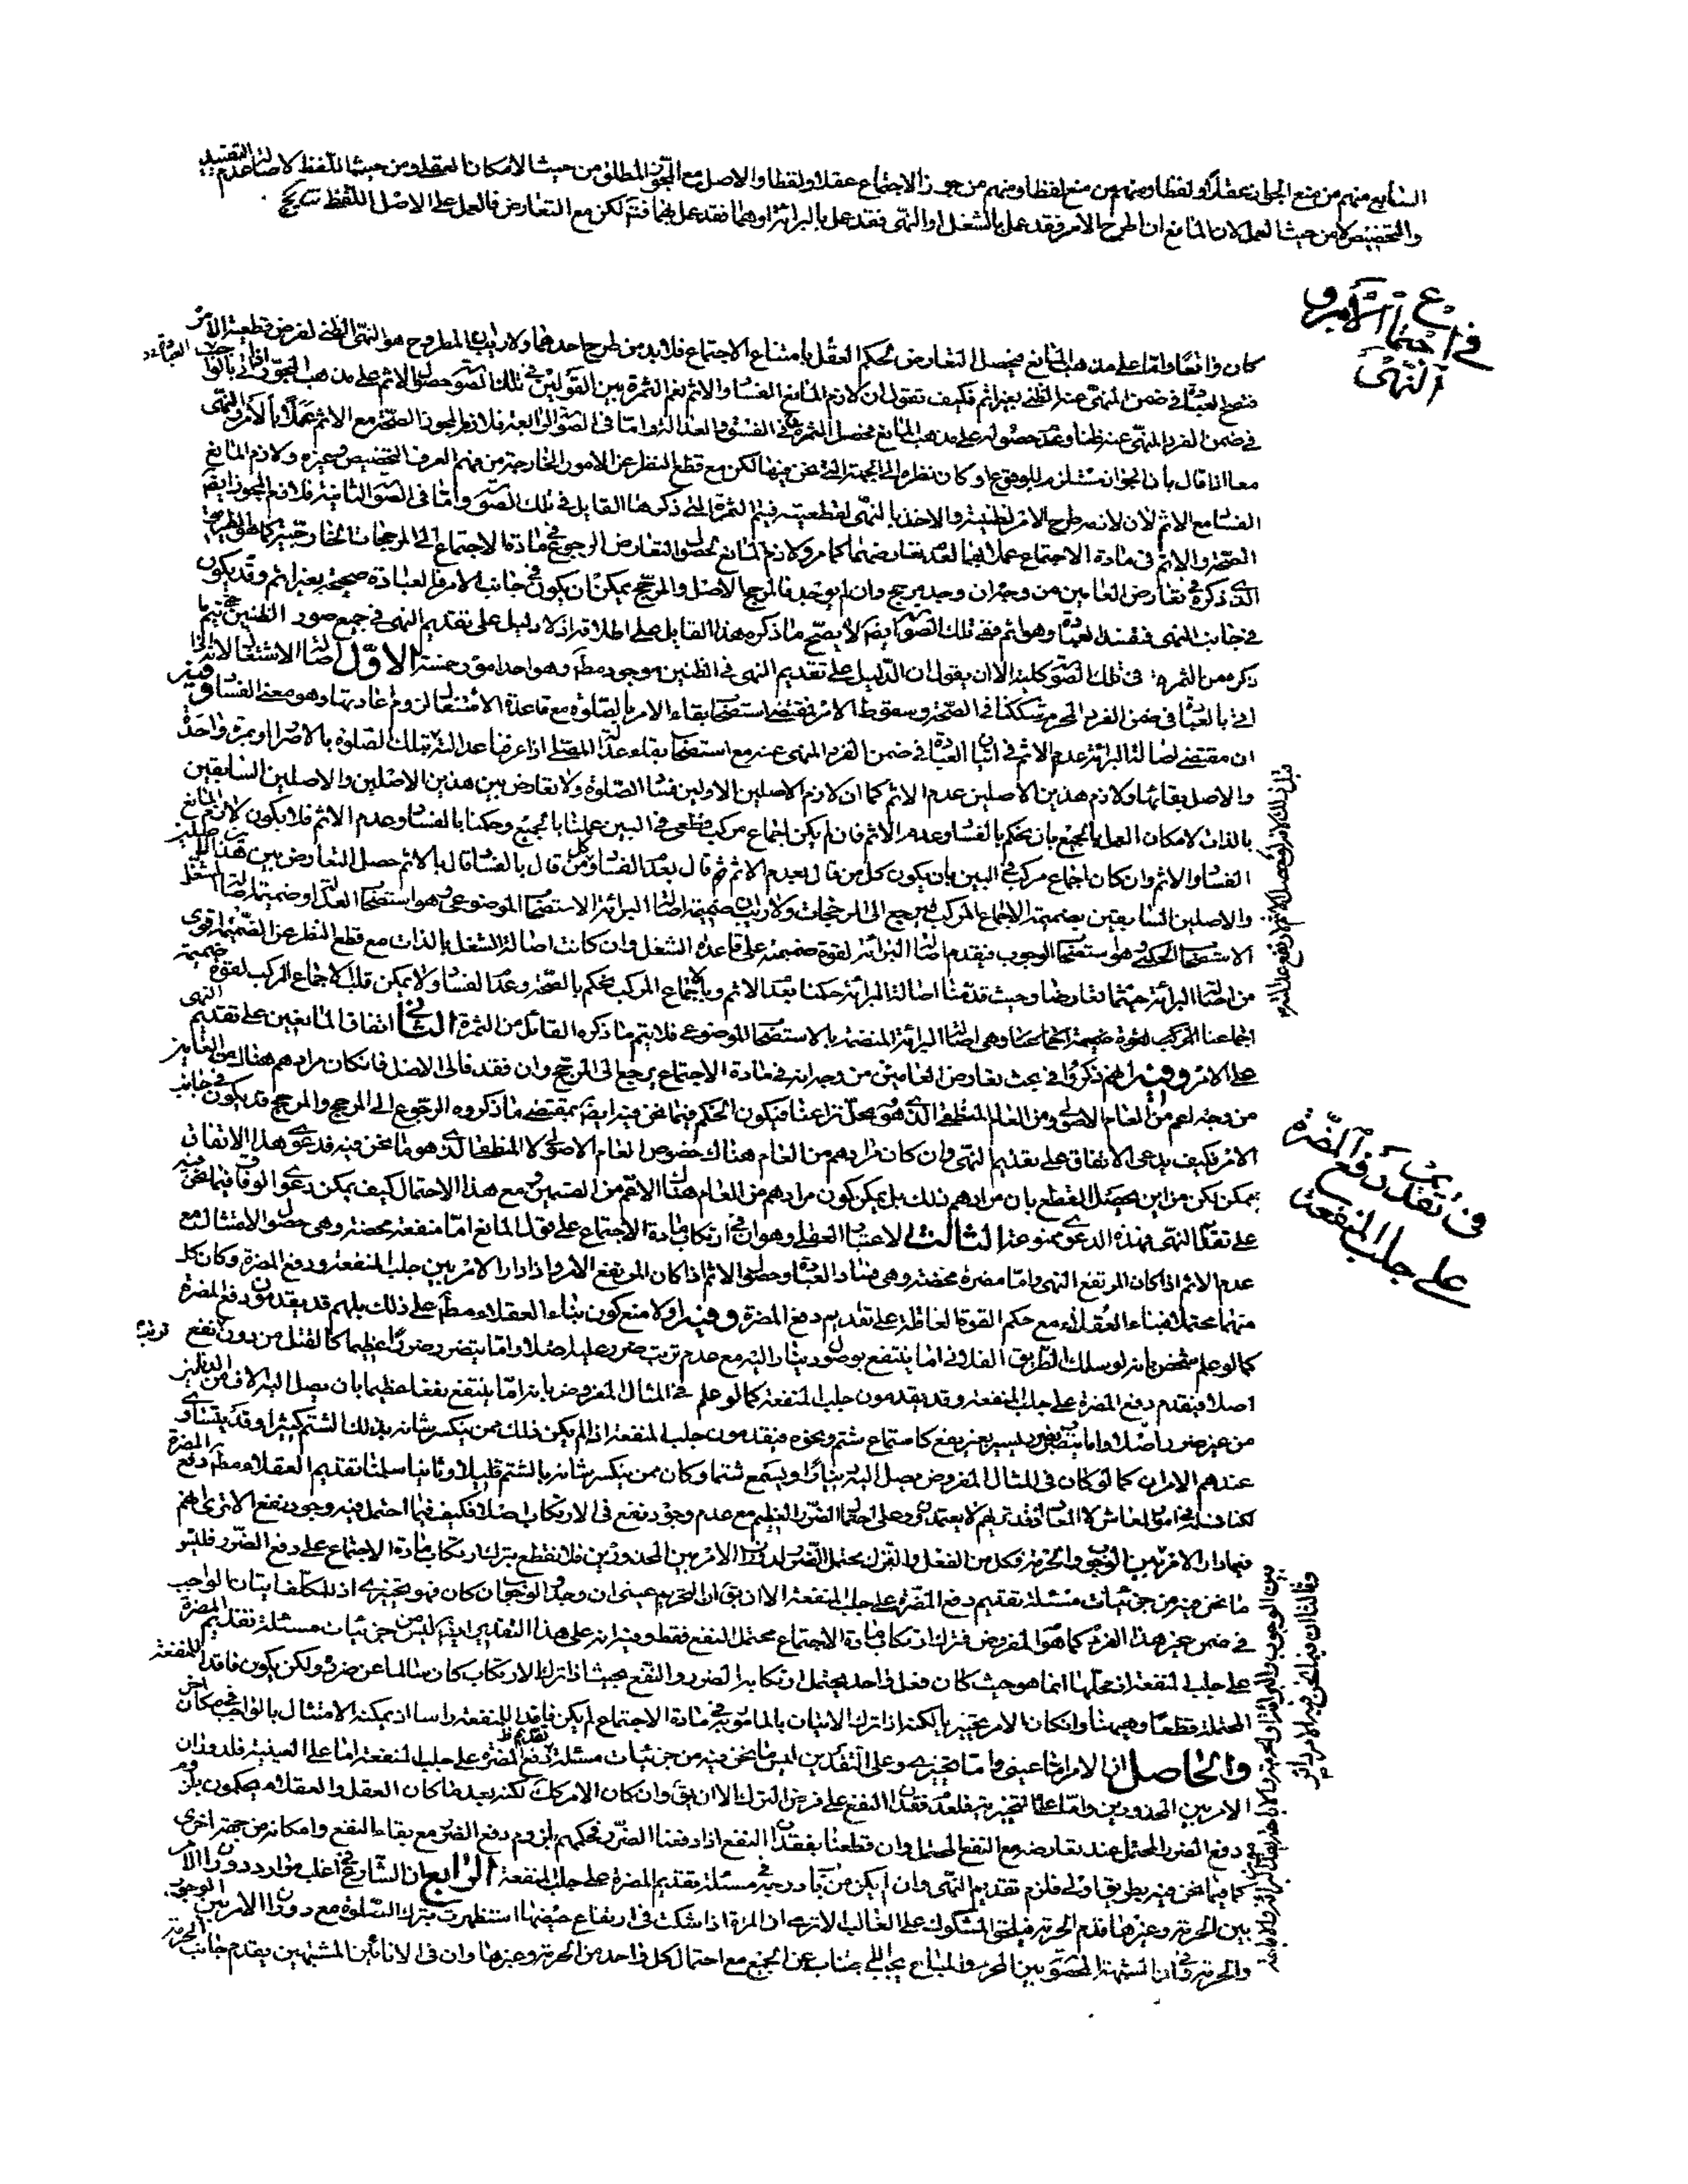 السابع منهم من منع الجواز عقلا ولفظا ومنهم من منع لفظا ومنهم من جوز الاجتماع عقلا ولفظا والاصل مع المجوز المطلق من حيث الامكان العقلى ومن حيث اللفظ لاصالة عدم التقييد
والتخصيص لا من حيث العمل لان المانع ان طرح الامر فقد عمل بالشغل او النهى فقد عمل بالبرائة او هما فقد عمل بهما فتم لكن مع التعارض فالعمل على الاصل اللفظى
فى اجتماع الامر و
النهى
كان واقعا واما على مذهب المانع فيحصل التعارض بحكم العقل بامتناع الاجتماع فلا بد من طرح احدهما ولا ريب ان المطروح هو النهى الظنى لفرض قطعية الامر
فتصح العبادة فى ضمن المنهى عنه الظنى بغير اثم فكيف تقول ان لازم المانع الفساد والاثم نعم الثمرة بين القولين فى تلك الصور حصول الاثم على مذهب المجوز
فى ضمن الفرد المنهى عنه ظنا وعدم حصوله على مذهب المانع فتحصل الثمرة فى الفسق والعدالة واما فى الصورة الرابعة فلازم المجوز الصحة مع الاثم عملا بالامر والنهى
معا اذا قال بان الجواز مستلزم للوقوع او كان نظره الى الجهة التى نحن فيها لكن مع قطع النظر عن الامور الخارجة من فهم العرف التخصيص وغيره ولازم المانع
الفساد مع الاثم لانه طرح الامر لظنيته والاخذ بالنهى لقطعيته فيتم الثمرة التى ذكرها القايل فى تلك الصور واما فى الصورة الثانية فلازم المجوز ايضا
الصحة والاثم فى مادة الاجتماع عملا بهما لعدم تعارضهما كما مر ولازم المانع لحصول التعارض الرجوع فى مادة الاجتماع الى المرجحات الخارجية كما هو
الذى ذكره فى تعارض العامين من وجه ان وجد مرجح وان لم يوجد فالمرجع الاصل والمرجح يمكن ان يكون فى جانب الامر فالعبادة صحيحة بغير اثم وقد يكون
فى جانب النهى فتفسد العبادة وهو اثم ففى تلك الصور ايضا لا يصح ما ذكره هذا القايل على اطلاقه اذ لا دليل على تقديم النهى فى جميع صور الظنيين حتى يتم ما
ذكره من الثمرة فى تلك الصور كلية الا ان يقول ان الدليل على تقديم النهى فى الظنيين موجود مط وهو احد امور خمسة الاول اصالة الاشتغال لانه اذا
اتى بالعبادة فى ضمن الفرد المحرم شككنا فى الصحة وسقوط الامر فمقتضى استصحاب بقاء الامر بالصلوة مع قاعدة الاشتغال لزوم اعادتها وهو معنى الفساد وفيه
ان مقتضى اصالة البرائة عدم الاثم فى اتيان العبادة فى ضمن الفرد المنهى عنه مع استصحاب بقاء عدالة المصلى
والاصل بقائها ولازم هذين الاصلين عدم الاثم كما ان لازم الاصلين الاولين فساد الصلوة ولا تعارض بين هذين الاصلين والاصلين السابقين
بالذات لامكان العمل بالجميع بان يحكم بالفساد وعدم الاثم فان لم يكن اجماع مركب قطعى فى البين عملنا بالجميع وحكمنا بالفساد وعدم الاثم فلا يكون لازم المانع
الفساد والاثم وان كان اجماع مركب فى البين بان يكون كل من قال بعدم الاثم قال بعدم الفساد وكل من قال بالفساد قال بالاثم حصل التعارض بين هذين الاصلين
والاصلين السابقين بضميمة الاجماع المركب فيرجع الى المرجحات ولا ريب ان ضميمة اصالة البرائة الاستصحاب الموضوعى وهو استصحاب العدالة وضميمة اصالة الشغل
الاستصحاب الحكمى وهو استصحاب الوجوب فيقدم اصالة البرائة لقوة ضميمته على قاعدة الشغل وان كانت اصالة الشغل بالذات مع قطع النظر عن الضميمة اقوى
من اصالة البرائة حيثما تعارضا وحيث قدمنا اصالة البرائة حكمنا بعدم الاثم وبالاجماع المركب نحكم بالصحة وعدم الفساد ولا يمكن قلب الاجماع المركب لقوة ضميمة
اجماعنا المركب لقوة ضميمة اجماعنا وهى اصالة البرائة المنضمة بالاستصحاب الموضوعى فلا يتم ما ذكره القائل من الثمرة الثانى اتفاق المانعين على تقديم النهى
على الامر وفيه انهم ذكروا فى بحث تعارض العامين من وجه انه فى مادة الاجتماع يرجع الى المرجح وان فقد فالى الاصل فان كان مرادهم هناك من العامين
من وجه اعم من العام الاصولى ومن العام المنطقى الذى هو محل نزاعنا فيكون الحكم فيما نحن فيه ايضا بمقتضى ما ذكروه الرجوع الى المرجح والمرجح قد يكون فى جانب
الامر فكيف يدعى الاتفاق على تقديم النهى وان كان مرادهم من العام هناك خصوص العام الاصولى لا المنطقى الذى هو ما نحن فيه فدعوى هذا الاتفاق
يمكن لكن من اين يحصل القطع بان مرادهم ذلك بل يمكن كون مرادهم من العام هناك الاعم من القسمين ومع هذا الاحتمال كيف يمكن دعوى الوفاق فيما نحن فيه
على تقديم النهى فهذه الدعوى ممنوعة الثالث الاعتبار العقلى وهو ان فى ارتكاب مادة الاجتماع على قول المانع اما منفعة محضة وهى حصول الامتثال مع
عدم الاثم اذا كان المرتفع النهى واما مضرة محضة وهى فساد العبادة وحصول الاثم اذا كان المرتفع الامر واذا دار الامر بين جلب المنفعة ودفع المضرة وكان كل
منهما محتملا فبناء العقلاء مع حكم القوة العاقلة على تقديم دفع المضرة وفيه اولا منع كون بناء العقلاء مط على ذلك بل هم قد يقدمون دفع المضرة
كما لو علم شخص بانه لو سلك الطريق الفلانى اما ينتفع بوصول دينار اليه مع عدم ترتب ضرر عليه اصلا واما يتضرر ضررا عظيما كالقتل من دون نفع
اصلا فيقدم دفع المضرة على جلب المنفعة وقد يقدمون جلب المنفعة كما لو علم فى المثال المفروض بانه اما ينتفع نفعا عظيما بان يصل اليه الاف من الدنانير
من غير ضرر اصلا واما يتضرر بضرر يسير بغير نفع كاستماع شتم ونحوه فيقدمون جلب المنفعة اذا لم يكن ذلك ممن ينكسر شانه بذلك الشتم كثيرا وقد يتساوى
عندهم الامران كما لو كان فى المثال المفروض يصل اليه دينار او يستمع شتما وكان ممن ينكسر شانه بالشتم قليلا وثانيا سلمنا تقديم العقلاء مط دفع المضرة
لكنا نمنعه فى امور المعاش لا المعاد فقد تريهم لا يعتمدون على احتمال الضرر العظيم مع عدم وجود نفع فى الارتكاب اصلا فكيف فيما احتمل فيه وجود نفع الا ترى انهم
فيما دار الامر بين الوجوب والحرمة فكل من الفعل والترك محتمل الضرر لدوران الامر بين المحذورين فلا نقطع بترك ارتكاب مادة الاجتماع على دفع الضرر فليس
ما نحن فيه من جزئيات مسئلة تقديم دفع المضرة على جلب المنفعة الا ان يق ان التحريم عينى ان وجد والوجوب ان كان فهو تخييرى اذ للمكلف اتيان الواجب
فى ضمن غير هذا الفرد كما هو المفروض فترك ارتكاب مادة الاجتماع محتمل النفع فقط وفيه انه على هذا التقدير ايضا ليس من جزئيات مسئلة تقديم المضرة
على جلب المنفعة اذ محلها انما هو حيث كان فعل واحد يحتمل ارتكابه الضرر والنفع بحيث اذا ترك الارتكاب كان سالما عن ضرره ولكن يكون فاقدا للمنفعة
المحتملة قطعا وهيهنا وان كان الامر تخيير يا لكنه اذا ترك الاتيان بالمامور به فى مادة الاجتماع لم يكن فاقدا للمنفعة راسا اذ يمكنه الامتثال بالواجب فى مكان اخر
والحاصل ان الامر اما عينى واما تخييرى وعلى التقديرين ليس ما نحن فيه من جزئيات مسئلة تقديم دفع المضرة على جلب المنفعة اما على العينية فلدوران
الامر بين المحذورين واما على التخييرية فلعدم فقدان النفع على فرض الترك الا ان يق وان كان الامر كك لكنه بعد ما كان العقل والعقلاء يحكمون بلزوم
دفع الضرر المحتمل عند تعارضه مع النفع المحتمل وان قطعنا بفقدان النفع اذا دفعنا الضرر فحكمهم بلزوم دفع الضرر مع بقاء النفع وامكانه من جهة اخرى
كما فيما نحن فيه بطريق اولى فلزم تقديم النهى وان لم يكن من باب درجه فى مسئلة تقديم المضرة على جلب المنفعة الرابع ان الشارع فى اغلب موارد دوران الامر
بين الحرمة وغيرها قدم الحرمة فيلحق المشكوك على الغالب الا ترى ان المراة اذا شكت فى ارتفاع حيضها استظهرت بترك الصلوة مع دوران الامر بين الوجوب
والحرمة وان فى الشبهة المحصورة بين الحرام والمباح يجب الاجتناب عن الجميع مع احتمال كل واحد من الحرمة وغيرها وان فى الانائين المشتبهين يقدم جانب الحرمة
فى تقديم دفع المضرة
على جلب المنفعة